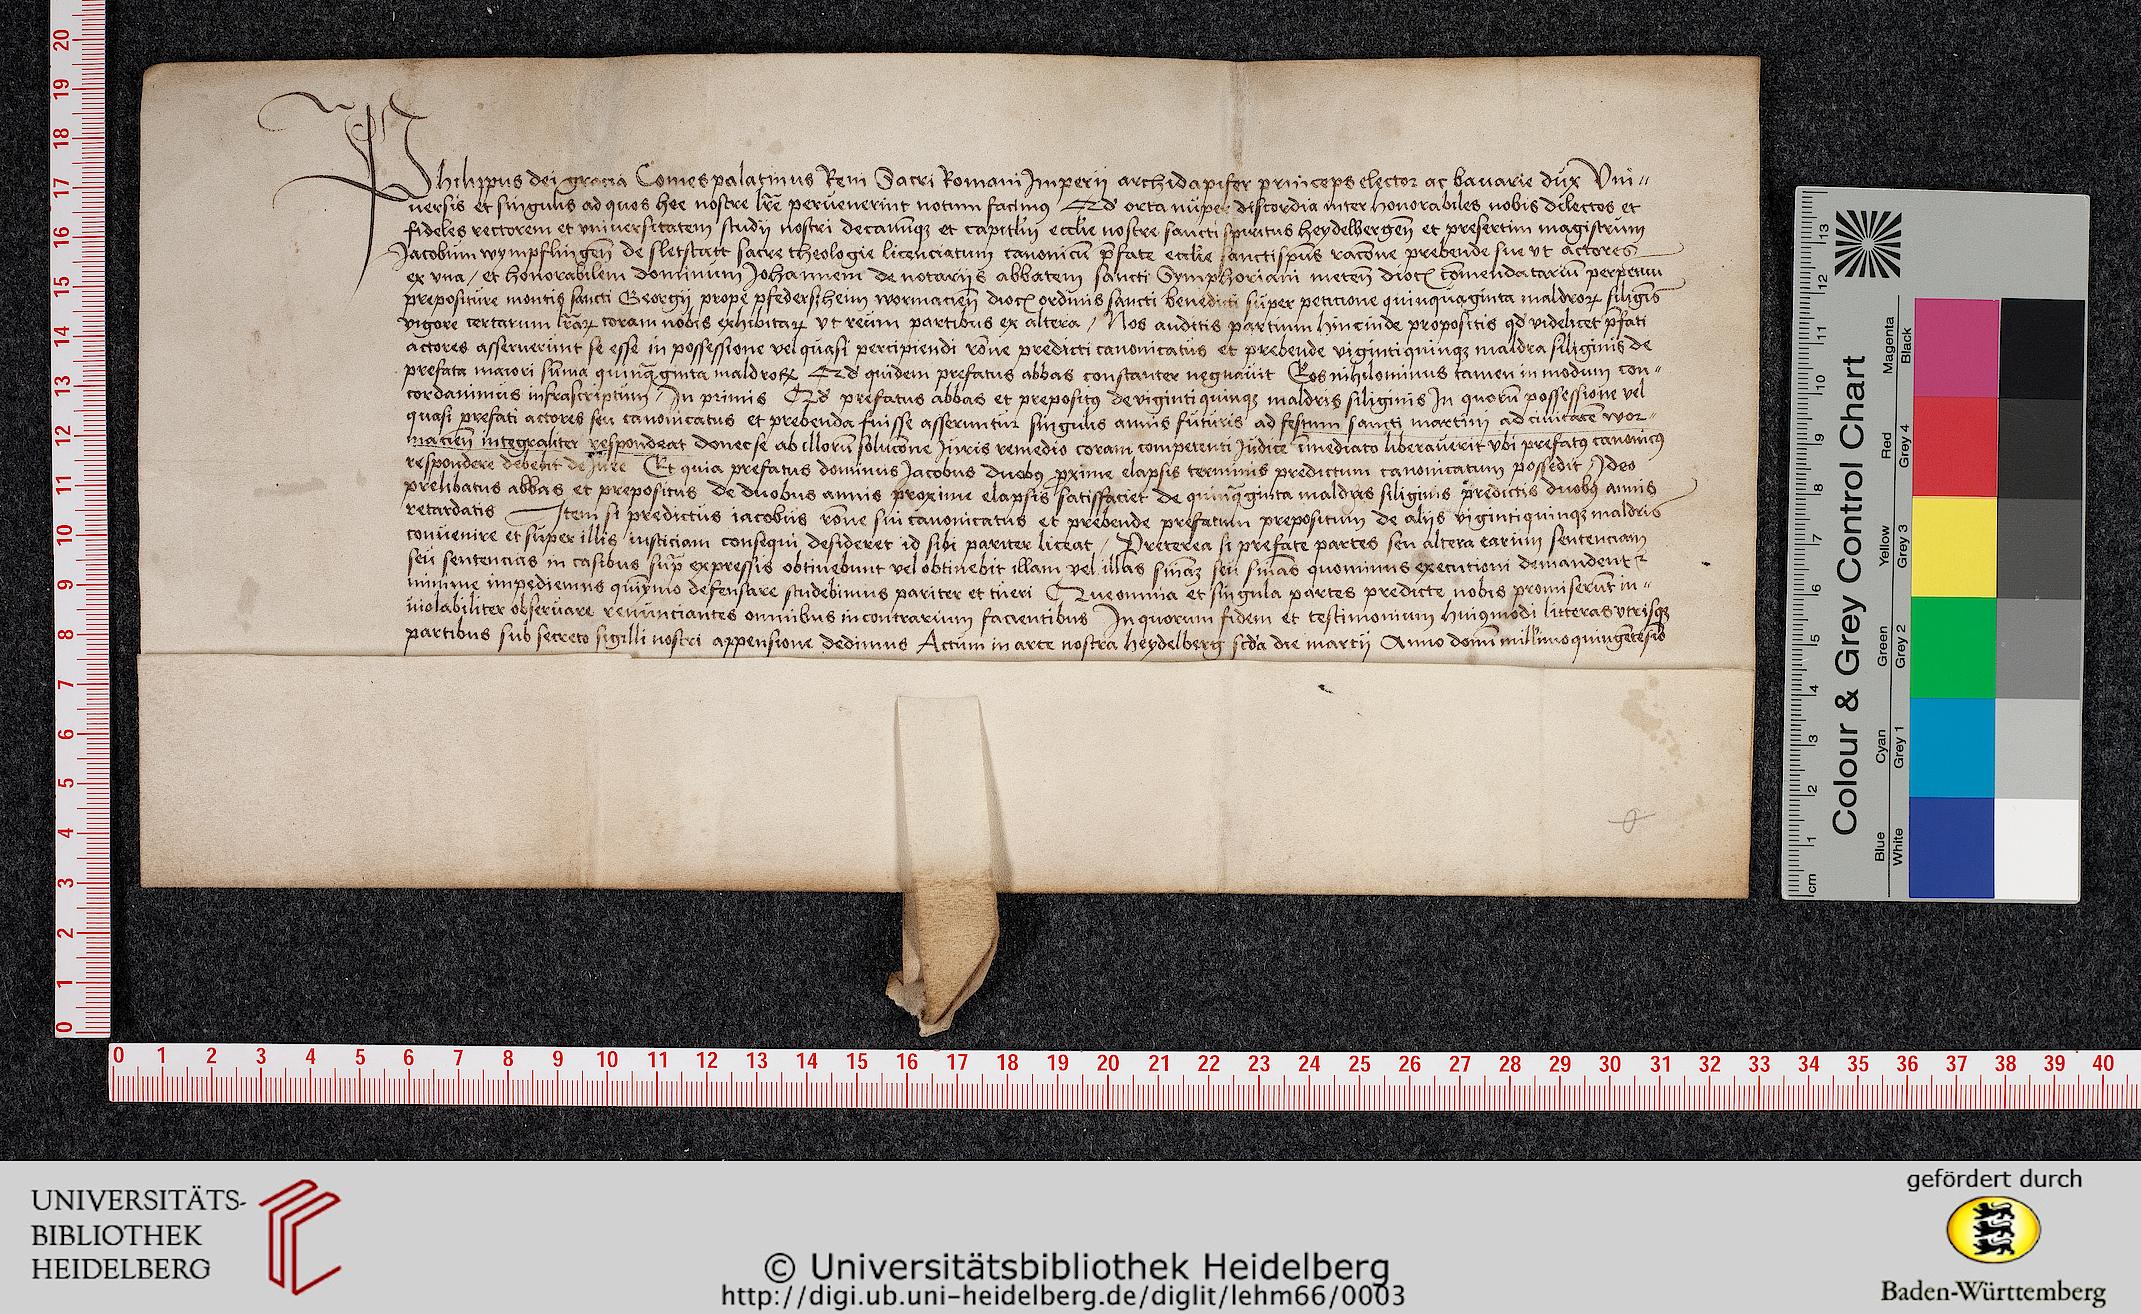 Philippus dei gracia Comes palatinus Reni Sacri Romani Imperij archidapifer princeps elector ac bavarie dux Vni=
uersis et singulis ad quos hee nostre lr̃e peruenerint notum facimus Qd' orta nuper discordia inter honorabiles nobis dilectos et
fideles rectorem et vniuersitatem studij nostri decanumq; et capitlm̃ eccl̃ie nostre sancti spiritus heydelbergeñ et presertim magistrum
Jacobum wympflingeñ de sletstatt sacre theologie licenciatum canonicũ p̃fate eccl̃ie sanctispũs racõne prebende sue vt actores
ex vna / et honorabilem dominum Johannem de notarijs abbatem sancti Symphoriani meteñ dioc̃ comendatarium perpetuũ
prepositure montis sancti Georgij prope pfedersheim wormacieñ dioc̃ ordinis sancti benedicti super peticione quinquaginta maldroꝝ siliginis
vigore certarum lr̃aꝝ coram nobis exhibitaꝝ vt reum partibus ex altera / Nos auditis partium hincinde propositis qd' videlicet p̃fati
actores asseruerunt se esse in possessione vel quasi percipiendi rõne predicti canonicatus et prebende vigintiquinq; maldra siliginis de
prefata maiori sum̃a quinq̃ginta maldroꝝ Qd' quidem prefatus abbas constanter negauit Eos nihilominus tamen in modum con=
cordauimus infrascriptum / In primis Qd' prefatus abbas et prepositus de vigintiquinq; maldris siliginis In quorũ possessione vel
quasi prefati actores seu canonicatus et prebenda fuisse asseruntur singulis annis futuris ad festum sancti martini ad ciuitatẽ wor=
macieñ integraliter respondeat donec se ab illorũ solucõne Juris remedio coram competenti Judice im̃ediato liberauerit vbi prefatꝰ canonicꝰ
respondere debebit de jure Et quia prefatus dominus Jacobus duobꝰ proxime elapsis terminis predictum canonicatum possedit / Ideo
prelibatus abbas et prepositus de duobus annis proxime elapsis satisfaciet de quinq̃ginta maldris siliginis predictis duobꝰ annis
retardatis Item si predictus iacobus rõne sui canonicatus et prebende prefatum prepositum de alijs vigintiquinq; maldris
conuenire et super illis iusticiam consequi desideret id sibi pariter liceat / Preterea si prefate partes seu altera earum sentenciam
seu sentencias in casibus sup̃ expressis obtinebunt vel obtinebit illam vel illas sniãꝫ seu sniãs quominus executioni demandent̃
minime impediemus quiỹmo defensare studebimus pariter et tueri Que omnia et singula partes predicte nobis promiserũt in=
uiolabiliter obseruare renunciantes omnibus in contrarium facientibus In quorum fidem et testimonium huiusmodi litteras vtrisq;
partibus sub secreto sigilli nostri appensione dedimus Actum in arce nostra heydelberg scd'a die marcij Anno domĩ millĩmoquingẽtesiõ
Colour & Grey Control Chart
Blue Cyan Green Yellow Red Magenta
White Grey 1 Grey 2 Grey 3 Grey 4 Black
cm 1 2 3 4 5 6 7 8 9 10 11 12 13
20
19
18
17
16
15
14
13
12
11
10
9
8
7
6
5
4
3
2
1
0
0 1 2 3 4 5 6 7 8 9 10 11 12 13 14 15 16 17 18 19 20 21 22 23 24 25 26 27 28 29 30 31 32 33 34 35 36 37 38 39 40
UNIVERSITÄTS-
BIBLIOTHEK
HEIDELBERG
© Universitätsbibliothek Heidelberg
http://digi.ub.uni-heidelberg.de/diglit/lehm66/0003
gefördert durch
Baden-Württemberg